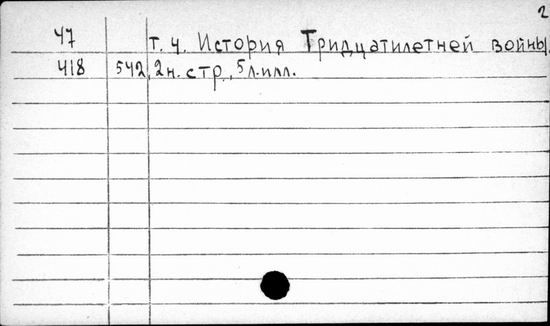 2
47 т. 4. История Тридцатилетней войны.
418 542, 2н. стр., 5 л. илл.